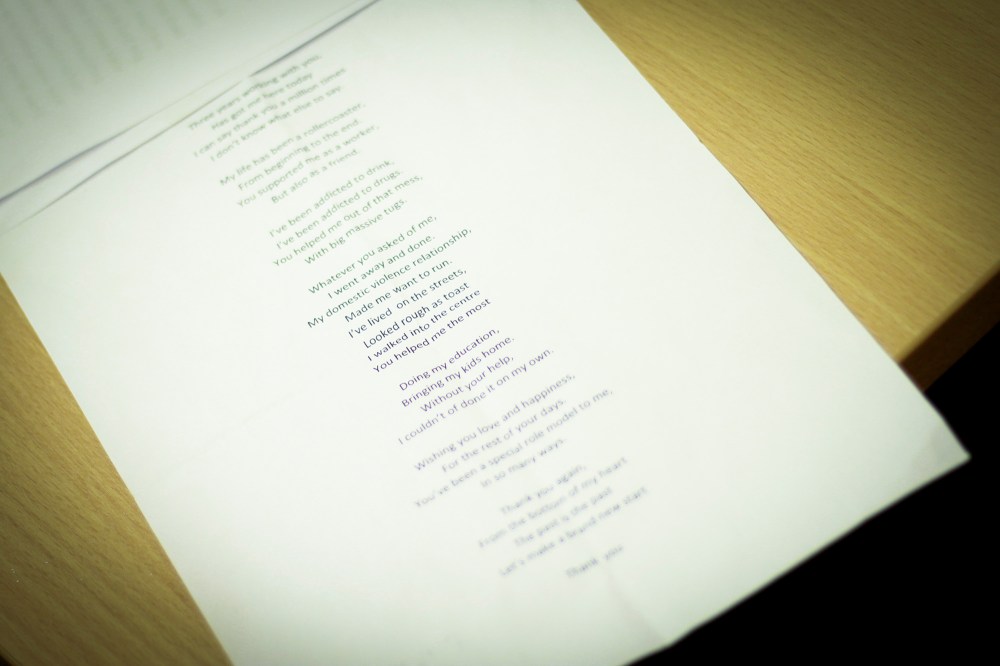 Three years working with you,
Has got me here today
I can say thank you a million times
I don't know what else to say.
My life has been a rollercoaster,
From beginning to the end.
You supported me as a worker,
But also as a friend.
I've been addicted to drink,
I've been addicted to drugs
You helped me out of that mess,
With big massive tugs.
Whatever you asked of me,
I went away and done.
My domestic violence relationship,
Made me want to run.
I've lived on the streets,
Looked rough as toast
I walked into the centre
You helped me the most
Doing my education,
Bringing my kids home.
Without your help,
I couldn't of done it on my own.
Wishing you love and happiness,
For the rest of your days.
You've been a special role model to me,
In so many ways.
Thank you again,
From the bottom of my heart
The past is the past
Let's make a brand new start
Thank you